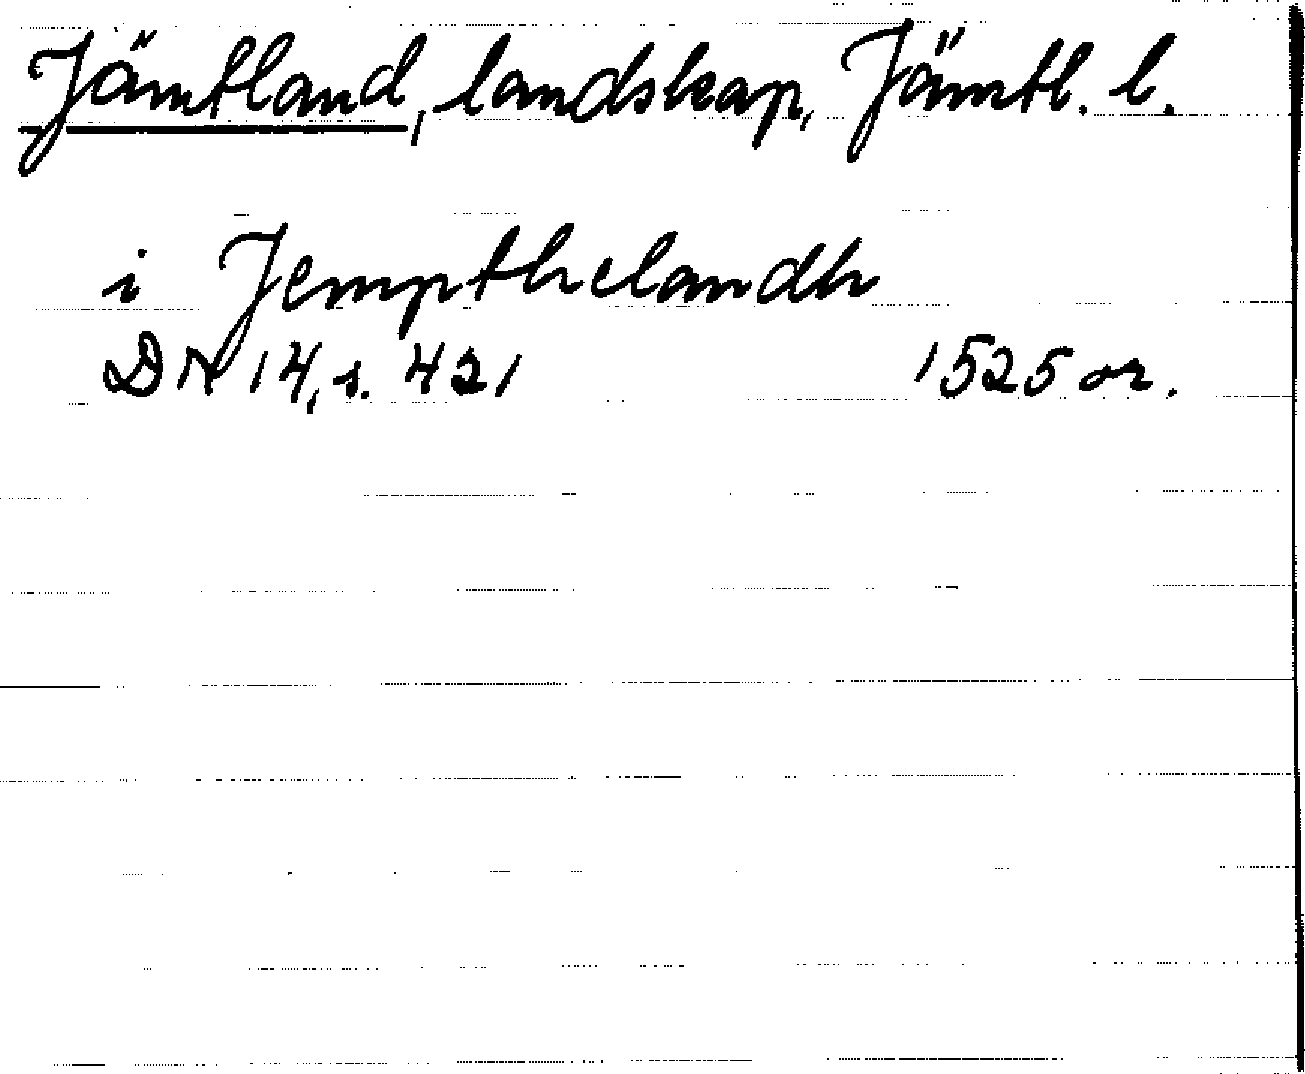 Jämtland, landskap, Jämtl. l.
i Jempthelandh
DN 14, s. 421 1525 or.